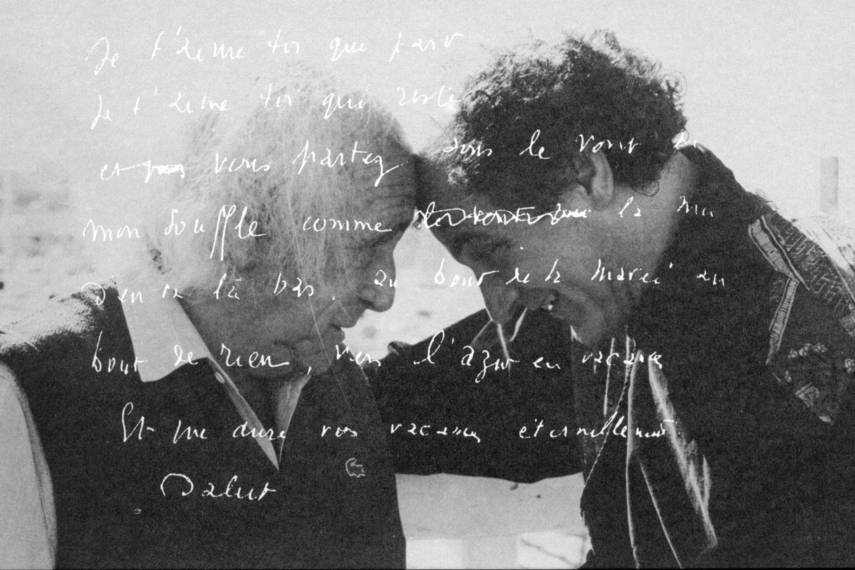 Je t'aime toi que pars
Je t'aime toi qui reste
et vous partez dans le vent
mon souffle comme la
d'en là bas, au bout de la au
bout de rien, vers l'azur en vacances
Et me dure vos vacances éternellement
Salut